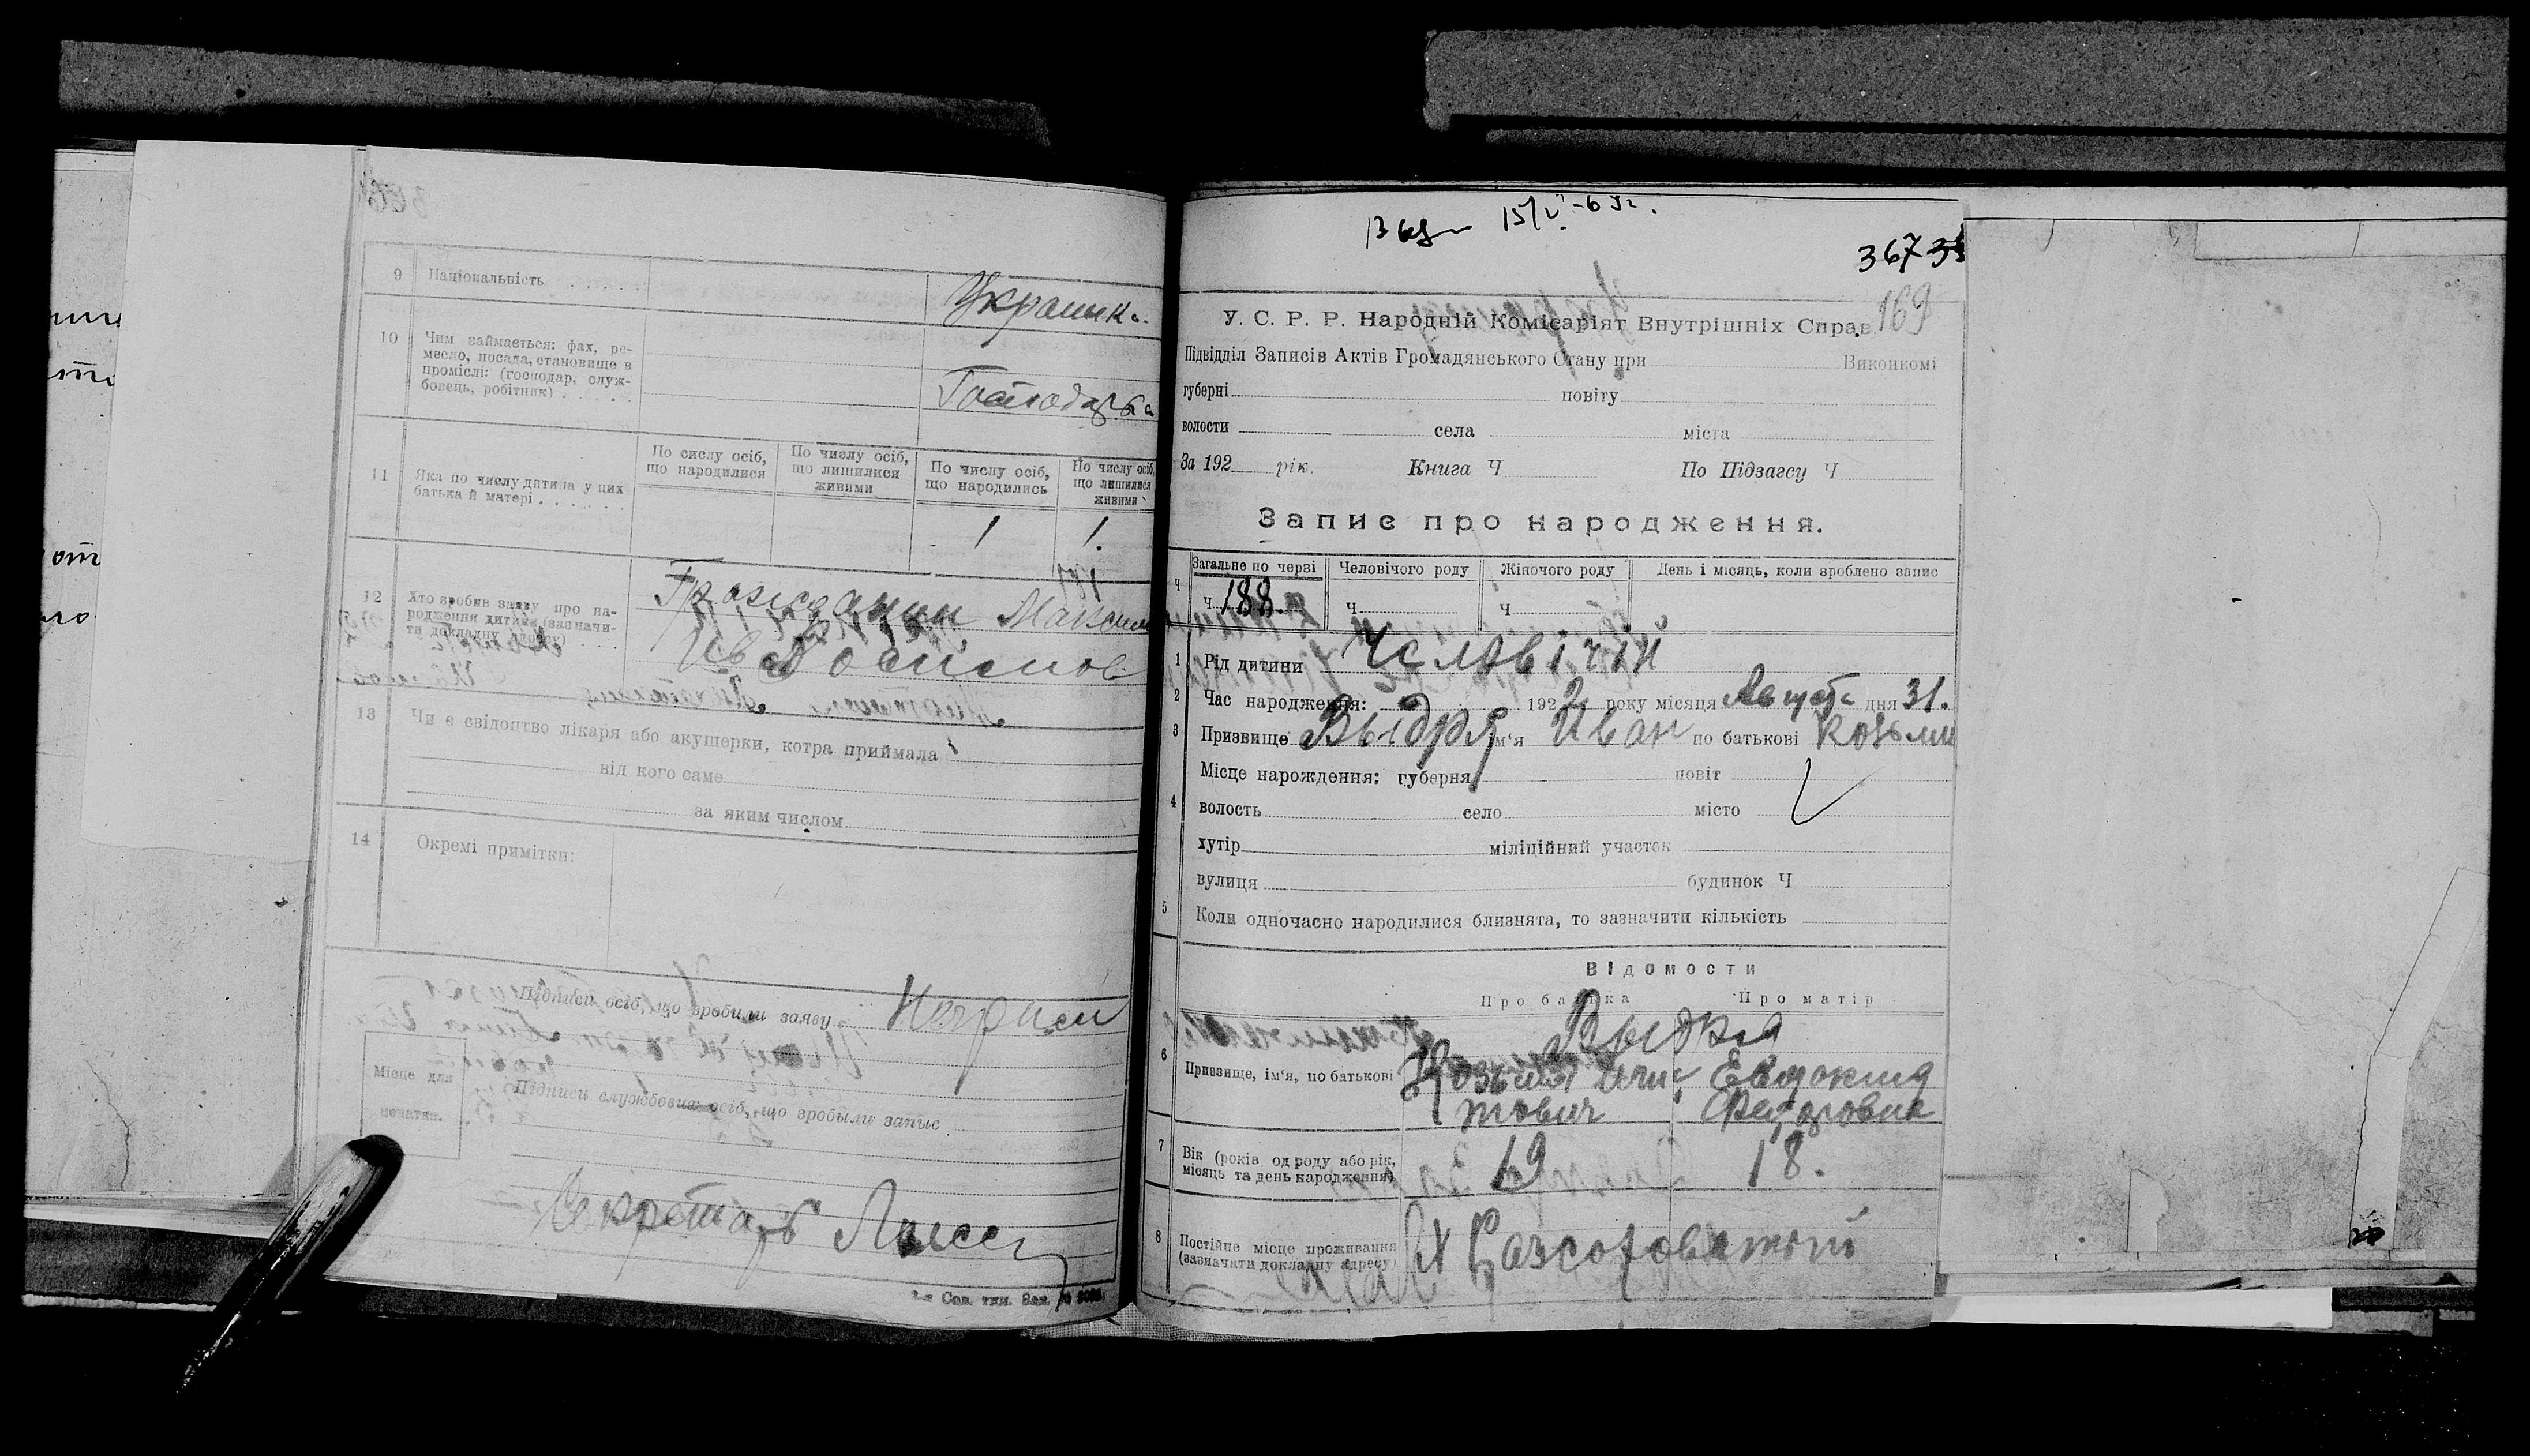 9 Національність
Украинк.
10 Чим займається: фах, ре-
месло, посада, становище в
промислі: (господар, служ-
бовець, робітник)
Господарка
11 Яка по числу дитина у цих
батька й матері
По сислу осіб,
що народилися
По числу осіб,
що лишилися
живими
По числу осіб,
що народились
По числу осіб,
що лишилися
живими
1 1.
12 Хто зробив заяву про на-
родження дитини (зазначи-
ти докладну адресу)
Гражданин Максим
13 Чи є свідоцтво лікаря або акушерки, котра приймала
від кого саме
за яким числом
14 Окремі примітки:
Підписи осіб, що зробили заяву
Місце для
печатки.
Підписи службових осіб, що зробыли запис
Секретарь
15/V-69г.
367
169
У. С. Р. Р. Народній Комісаріят Внутрішніх Справ.
Підвідділ Записів Актів Громадянського Стану при Виконкомі
губерні повіту
волости села міста
За 192 рік. Книга Ч По Підзагсу Ч
Запис про народження.
Ч Загальне по черзі Человічого роду Жіночого роду День і місяць, коли зроблено запис
Ч 188. Ч Ч
1 Рід дитини Человічій
2 Час народження: 1922 року місяця Августа дня 31.
3 Призвище Выдря ім'я Иван по батькові Козьми
Місце нарождення: губерня повіт
4 волость село місто
хутір міліційний участок
вулиця будинок Ч
5 Коли одночасно народилися близнята, то зазначити кількість
Відомости
Про батька Про матір
Выдря
6 Призвище, ім'я, по батькові Козьма Евдокия
тович Федоровна
7 Вік (років од роду або рік,
місяць та день народження)
19 18.
8 Постійне місце проживання
(зазначити докладну адресу)